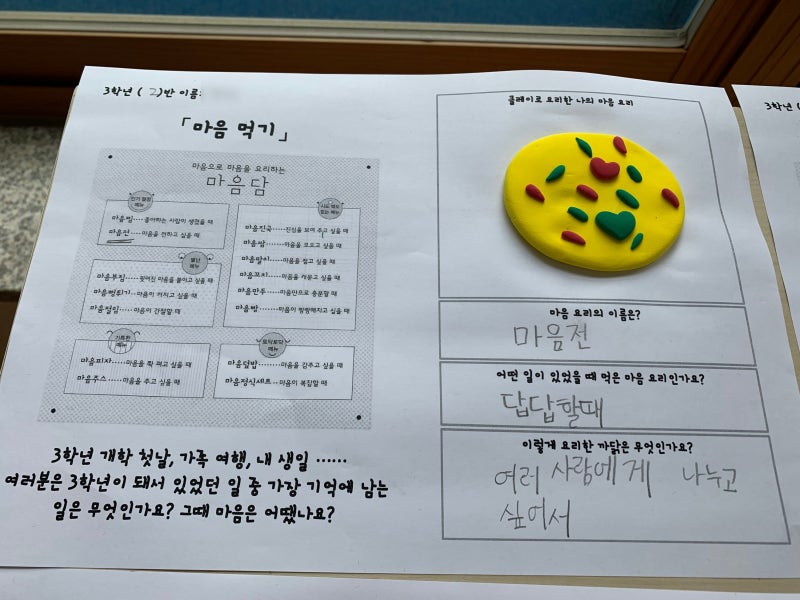 3학년 ( 2)반 이름:
「마음 먹기」
마음으로 마음을 요리하는
마음담
인기 많은
메뉴
마음찜······좋아하는 사람이 생겼을 때
마음전······마음을 전하고 싶을 때
별난
메뉴
마음부침······찢어진 마음을 붙이고 싶을 때
마음뻥튀기···마음이 커지고 싶을 때
마음절임······마음이 간절할 때
기특한
메뉴
마음피자······마음을 쫙 펴고 싶을 때
마음주스······마음을 주고 싶을 때
시도 때도
없는 메뉴
마음진국······진심을 보여 주고 싶을 때
마음쌈······마음을 모으고 싶을 때
마음말이······마음을 말고 싶을 때
마음꼬치······마음을 캐묻고 싶을 때
마음만두······마음만으로 충분할 때
마음빵······마음이 빵빵해지고 싶을 때
토닥토닥
메뉴
마음덮밥······마음을 감추고 싶을 때
마음정식세트···마음이 복잡할 때
3학년 개학 첫날, 가족 여행, 내 생일 ······
여러분은 3학년이 돼서 있었던 일 중 가장 기억에 남는
일은 무엇인가요? 그때 마음은 어땠나요?
클레이로 요리한 나의 마음 요리
마음 요리의 이름은?
마음전
어떤 일이 있었을 때 먹은 마음 요리인가요?
답답할때
이렇게 요리한 까닭은 무엇인가요?
여러 사람에게 나누고
싶어서
3학년 (